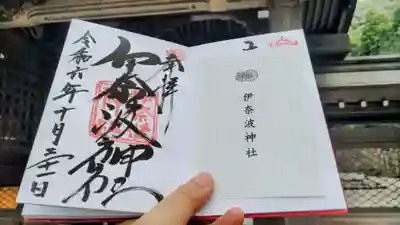 奉拝
伊奈波神社
令和六年十月二十一日
伊奈波神社